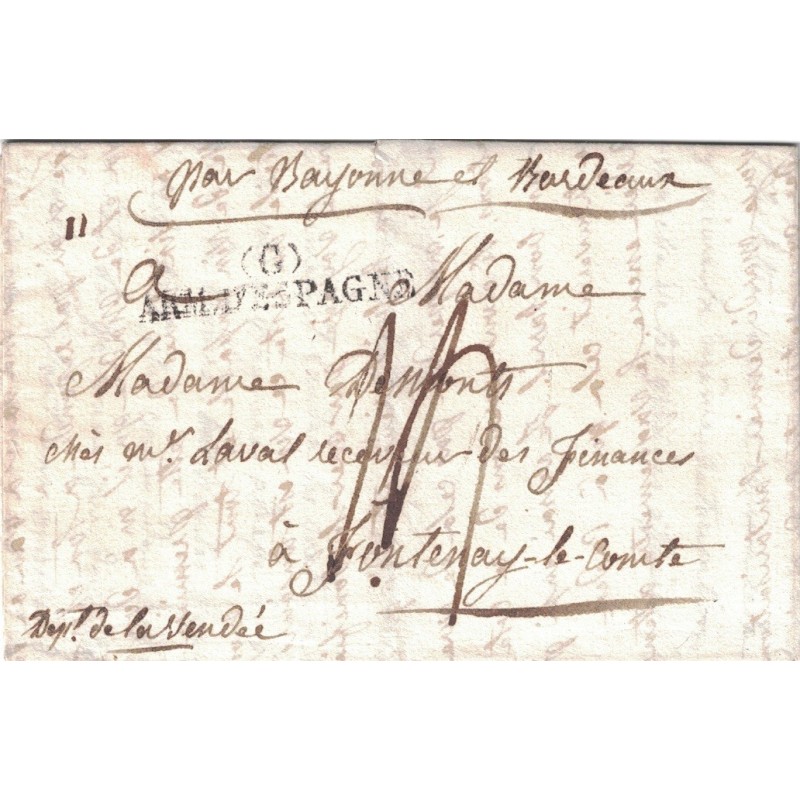 par Bayonne et Bordeaux
11
(G)
ARM. D'ESPAGNE
a Madame
Madame Demonts
chès mr. Laval receveur des Finances
à Fontenay-le-comte
Dept. de la Vendée